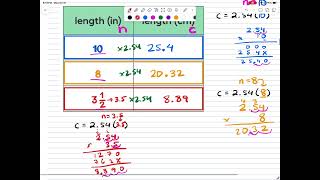 n=10
length (in) length (cm)
n c
10 ×2.54 25.4
8 ×2.54 20.32
3 1/2 → 3.5 ×2.54 8.89
c = 2.54(10)
2.54
× 10
000
254X
25.40
n=8
c = 2.54(8)
2.54
× 8
20.32
n=3.5
c = 2.54(3.5)
2.54
× 3.5
1270
762X
8.890